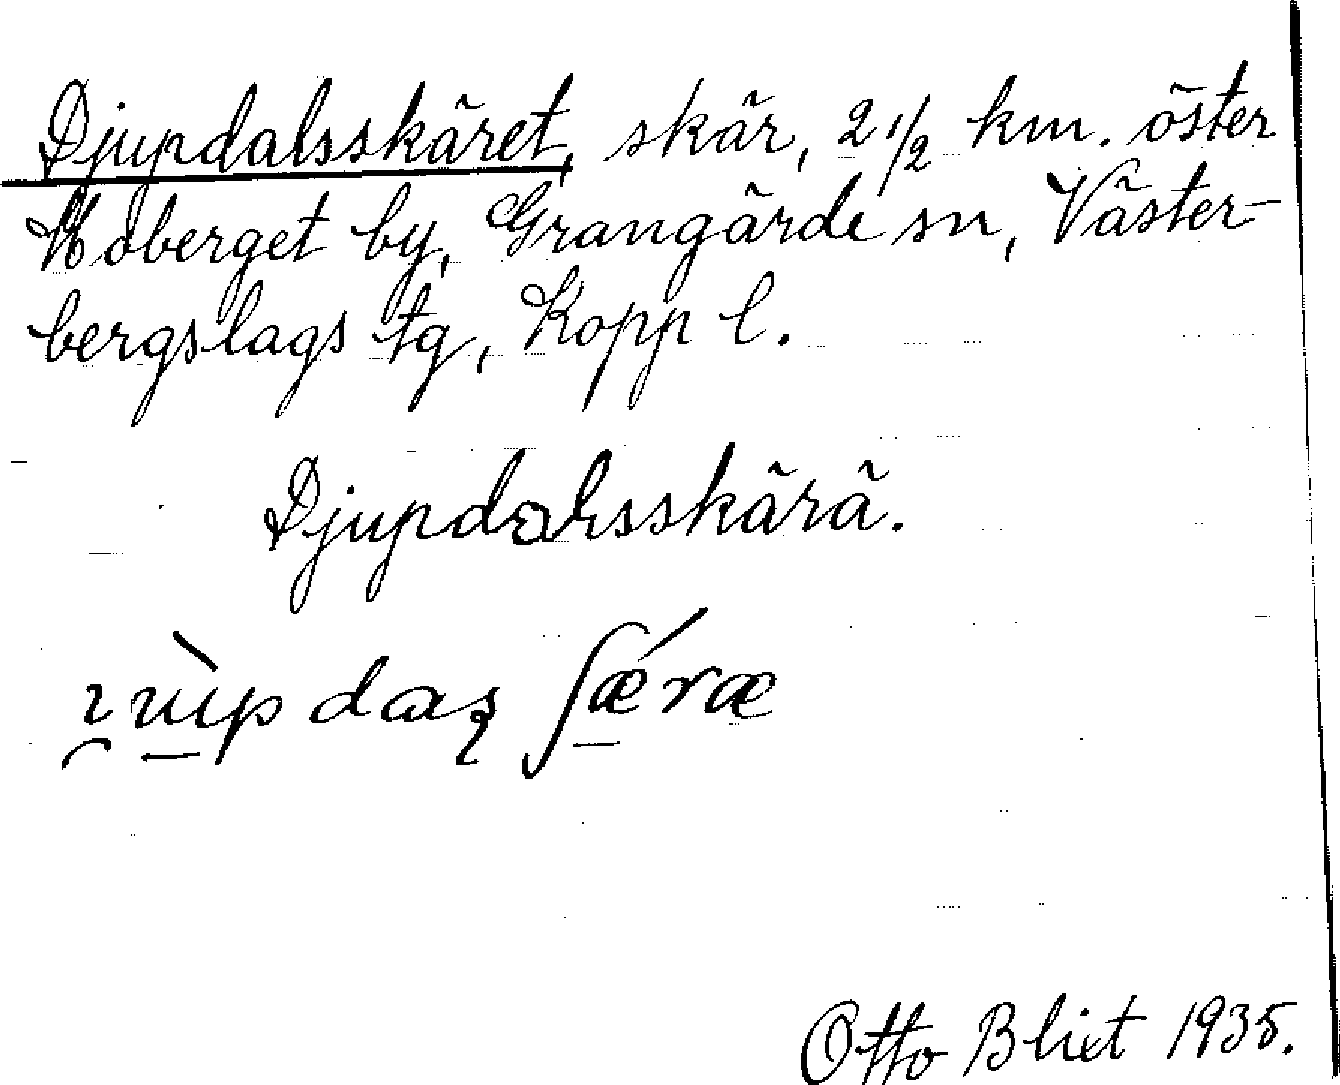 Djupdalsskäret, skär, 2 1/2 km. öster
Hoberget by, Grangärde sn, Väster-
bergslags tg, Kopp l.
Djupdalsskärä.
Otto Blixt 1935.